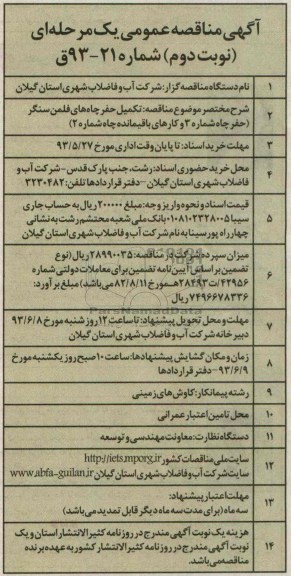 آگهی مناقصه عمومی یک مرحله‌ای
(نوبت دوم) شماره ۲۱-۹۳ق
۱ نام دستگاه مناقصه گزار: شرکت آب و فاضلاب شهری استان گیلان
۲ شرح مختصر موضوع مناقصه: تکمیل حفر چاه‌های فلمن سنگر
(حفر چاه شماره ۳ و کارهای باقیمانده چاه شماره ۲)
۳ مهلت خرید اسناد: تا پایان وقت اداری مورخ ۹۳/۵/۲۷
۴ محل خرید حضوری اسناد: رشت، جنب پارک قدس - شرکت آب و
فاضلاب شهری استان گیلان - دفتر قراردادها تلفن: ۳۲۳۰۴۸۲
۵ قیمت اسناد و نحوه واریز وجه: مبلغ ۲۰۰۰۰۰ ریال به حساب جاری
سیبا ۰۱۰۸۱۰۲۳۲۸۰۰۵ بانک ملی شعبه محتشم رشت به نشانی
چهارراه پورسینا به نام شرکت آب و فاضلاب شهری استان گیلان
۶ میزان سپرده شرکت در مناقصه: ۲۸۹۹۰۰۳۵ ریال (نوع
تضمین بر اساس آیین‌نامه تضمین برای معاملات دولتی شماره
۴۲۹۵۶/ت۲۸۴۹۳هـ مورخ ۸۲/۸/۱۱ می‌باشد) مبلغ برآورد:
۷۴۹۶۶۷۸۳۳۶ ریال
۷ مهلت و محل تحویل پیشنهاد: تا ساعت ۱۲ روز شنبه مورخ ۹۳/۶/۸
دبیرخانه شرکت آب و فاضلاب شهری استان گیلان
۸ زمان و مکان گشایش پیشنهادها: ساعت ۱۰ صبح روز یکشنبه مورخ
۹۳/۶/۹ - دفتر قراردادها
۹ رشته پیمانکار: کاوش‌های زمینی
۱۰ محل تامین اعتبار عمرانی
۱۱ دستگاه نظارت: معاونت مهندسی و توسعه
۱۲ سایت ملی مناقصات کشور http://iets.mporg.ir
سایت شرکت آب و فاضلاب شهری استان گیلان www.abfa-guilan.ir
۱۳ مهلت اعتبار پیشنهاد:
سه ماه (برای مدت سه ماه دیگر قابل تمدید می‌باشد)
۱۴ هزینه یک نوبت آگهی مندرج در روزنامه کثیرالانتشار استان و یک
نوبت آگهی مندرج در روزنامه کثیرالانتشار کشور به عهده برنده
مناقصه می‌باشد.
ParsNamadData